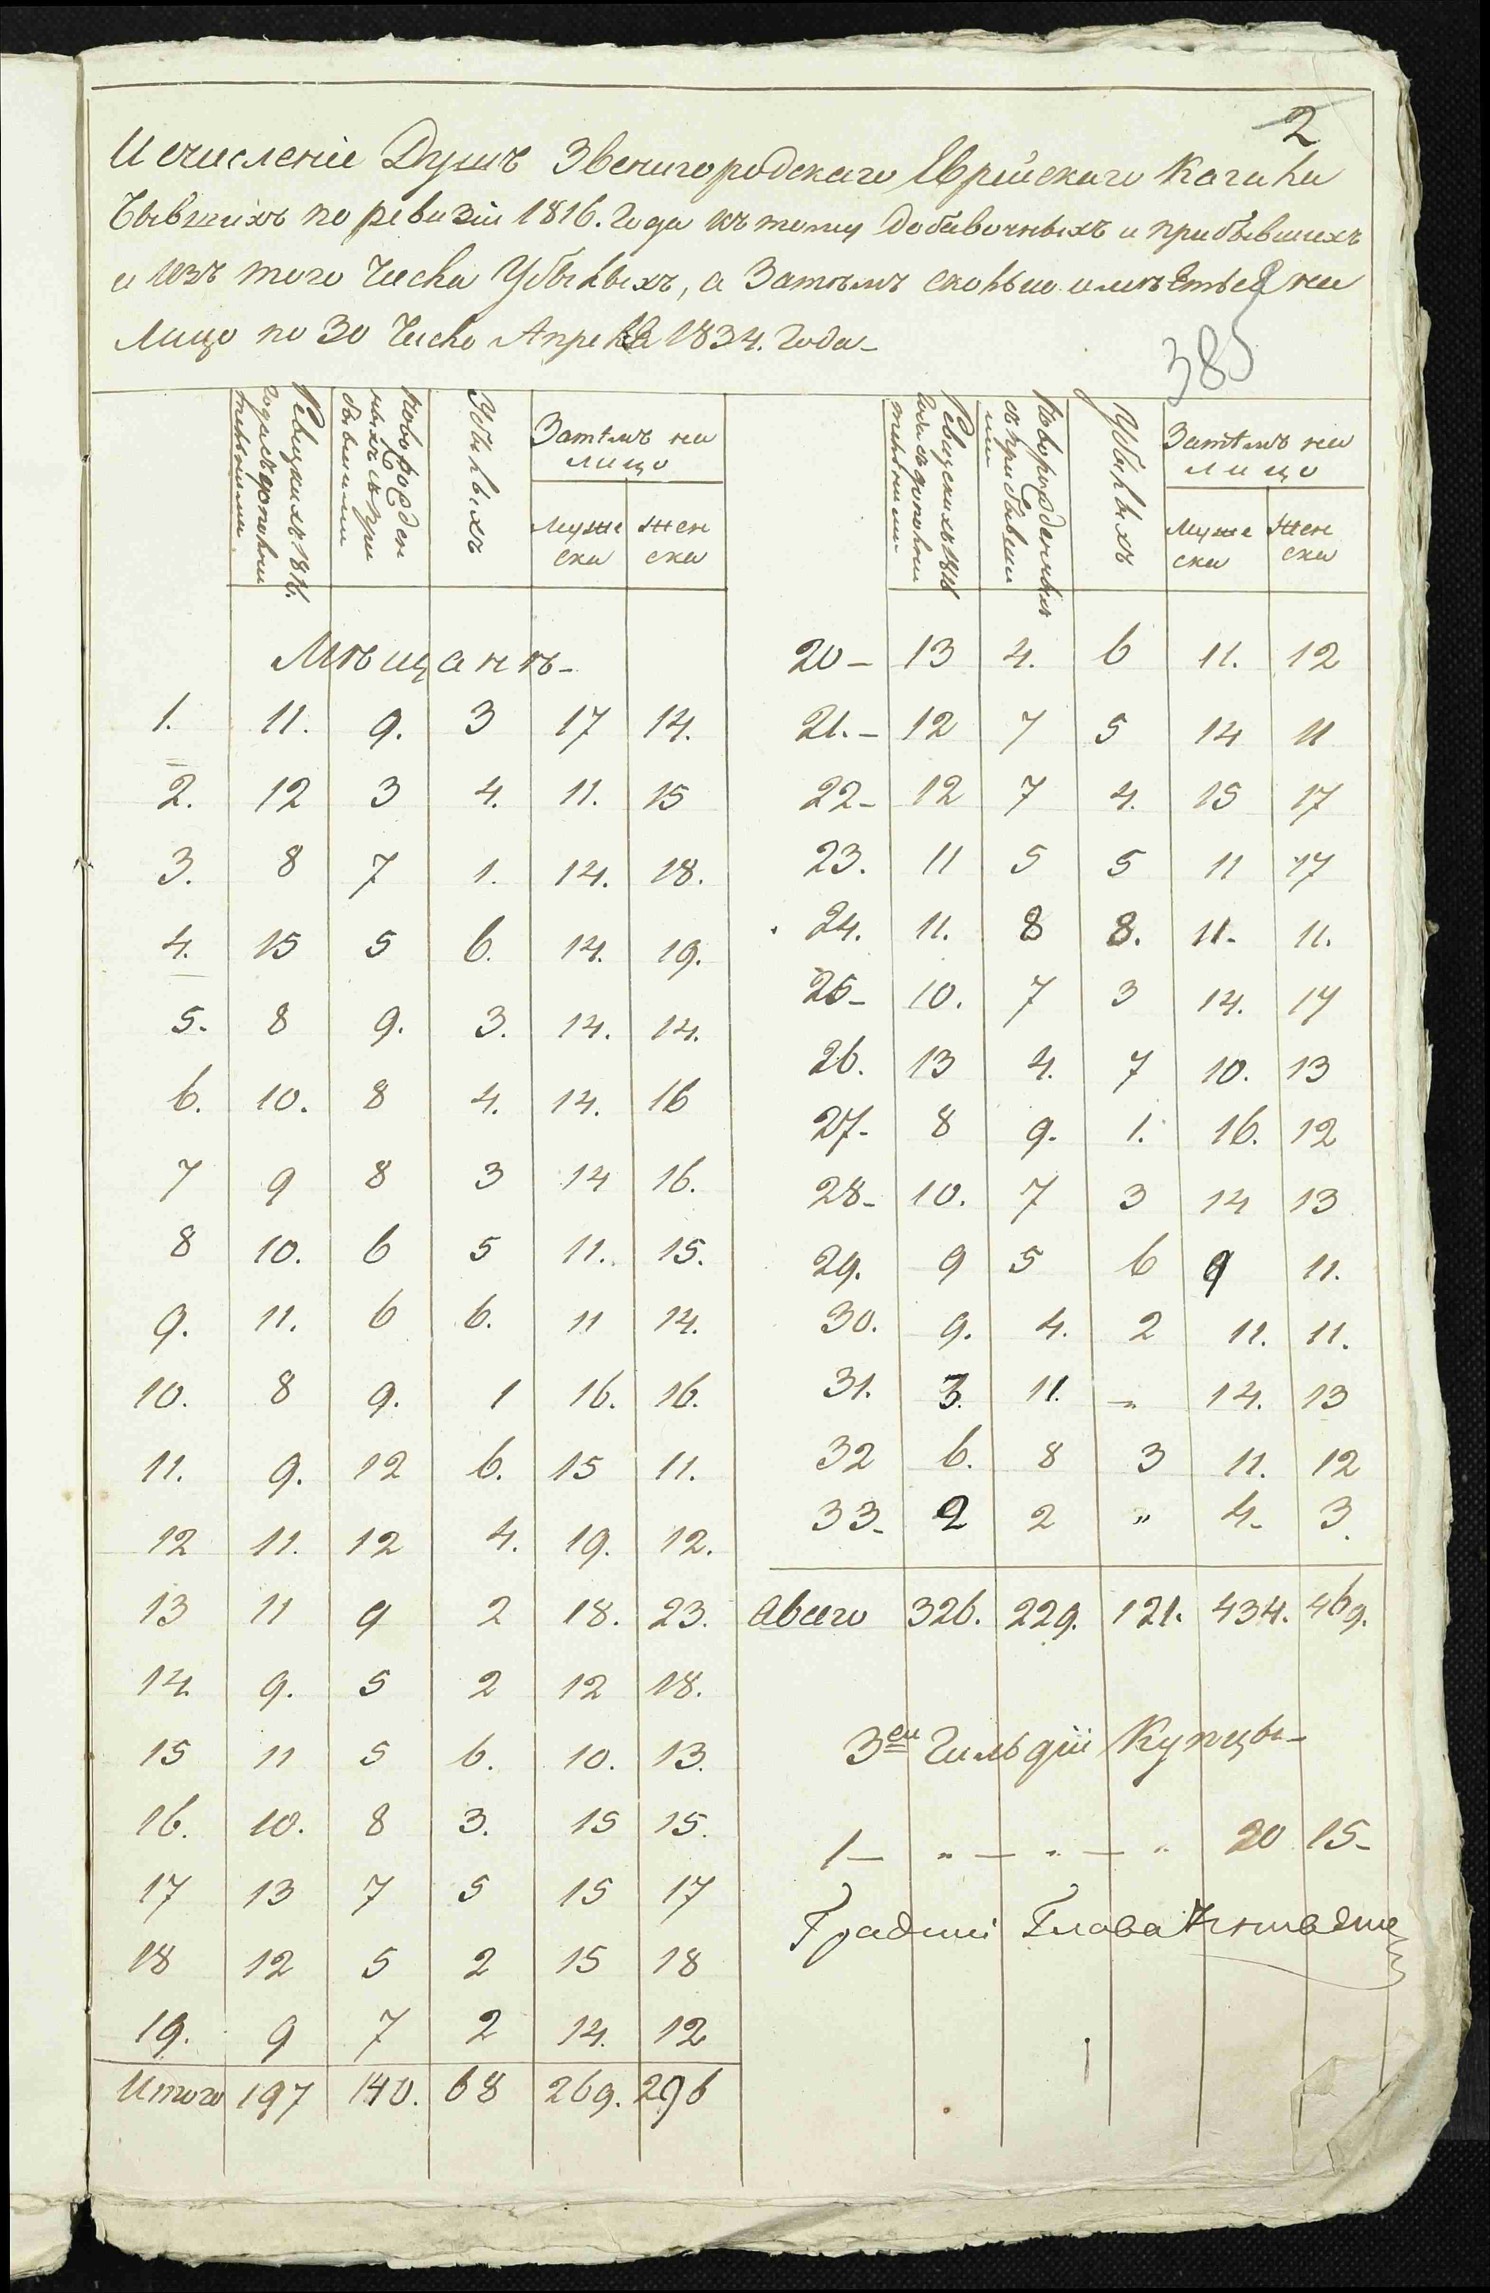 2
Исчисленіе Душъ Звенигородскаго Еврейскаго Кагала
бывшихъ по ревизіи 1816. года къ тому добавочныхъ и прибывшихъ
и изъ того числа Убылыхъ, а Затемъ сколько имѣеться на
Лицо по 30 Число Апреля 1834. года
385
Ревизкихъ 1816. Убылыхъ Затемъ на лицо Мужеска Женска
Ревизскихъ 1816 Новорожденныхъ съ прибывшими Убылыхъ Затемъ на лицо Мужеска Женска
Мѣщанъ
1. 11. 9. 3 17 14.
2. 12 3 4. 11. 15
3. 8 7 1. 14. 18.
4. 15 5 6. 14. 19.
5. 8 9. 3. 14. 14.
6. 10. 8 4. 14. 16
7 9 8 3 14 16.
8 10. 6 5 11. 15.
9. 11. 6 6. 11 14.
10. 8 9. 1 16. 16.
11. 9. 12 6. 15 11.
12 11. 12 4. 19. 12.
13 11 9 2 18. 23.
14 9. 5 2 12 18.
15 11 5 6. 10. 13.
16. 10. 8 3. 15 15.
17 13 7 5 15 17
18 12 5 2 15 18
19. 9 7 2 14. 12
Итого 197 140. 68 269. 296
20 – 13 4. 6 11. 12
21. – 12 7 5 14 11
22 – 12 7 4. 15 17
23. 11 5 5 11 17
24. 11. 8 8. 11. 11.
25 – 10. 7 3 14. 17
26. 13 4. 7 10. 13
27. 8 9. 1. 16. 12
28 – 10. 7 3 14 13
29. 9 5 6 9 11.
30. 9. 4. 2 11. 11.
31. 3. 11. „ 14. 13
32 6. 8 3 11. 12
33 – 2 2 „ 4 – 3.
А всего 326. 229. 121. 434. 469.
3ей Гильдіи Купцы –
1 – „ – „ – „ 20 15 –
Градскій Глава